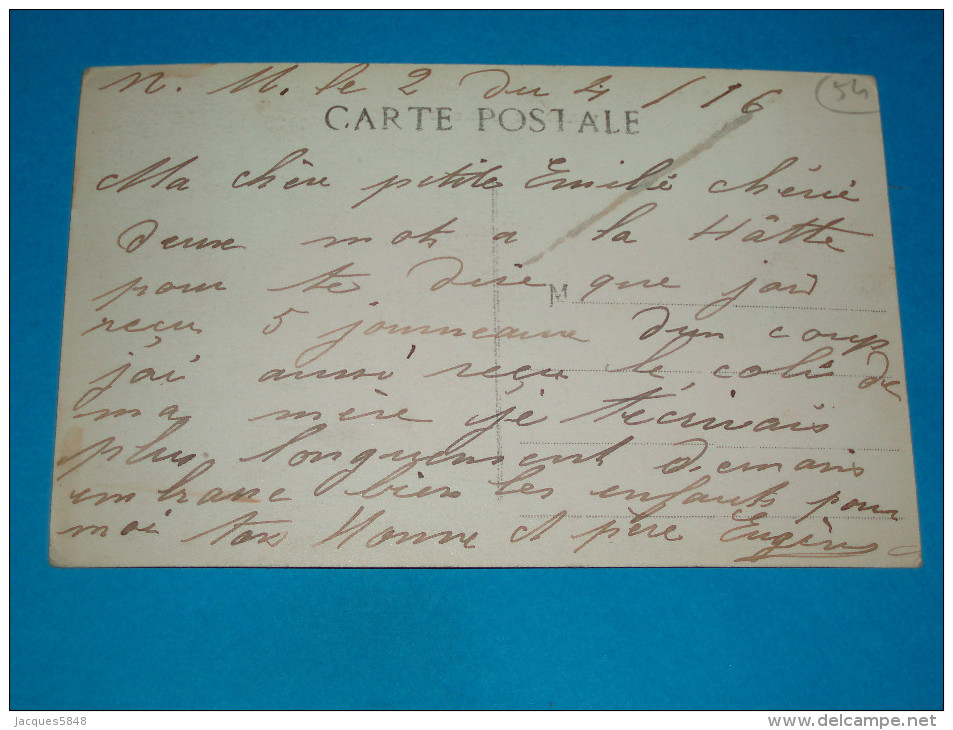 N. M. le 2 du 4 / 16
(54)
CARTE POSTALE
Ma chère petite Emilie chérie
deux mots a la Hâtte
pour te dire que jai
M
recu 5 journeaux dun coup
jai aussi reçu le colis de
ma mère je técrirais
plus longuement demain
embrasse bien les enfants pour
moi ton Homme et père Eugène
Jacques5848
www.delcampe.net